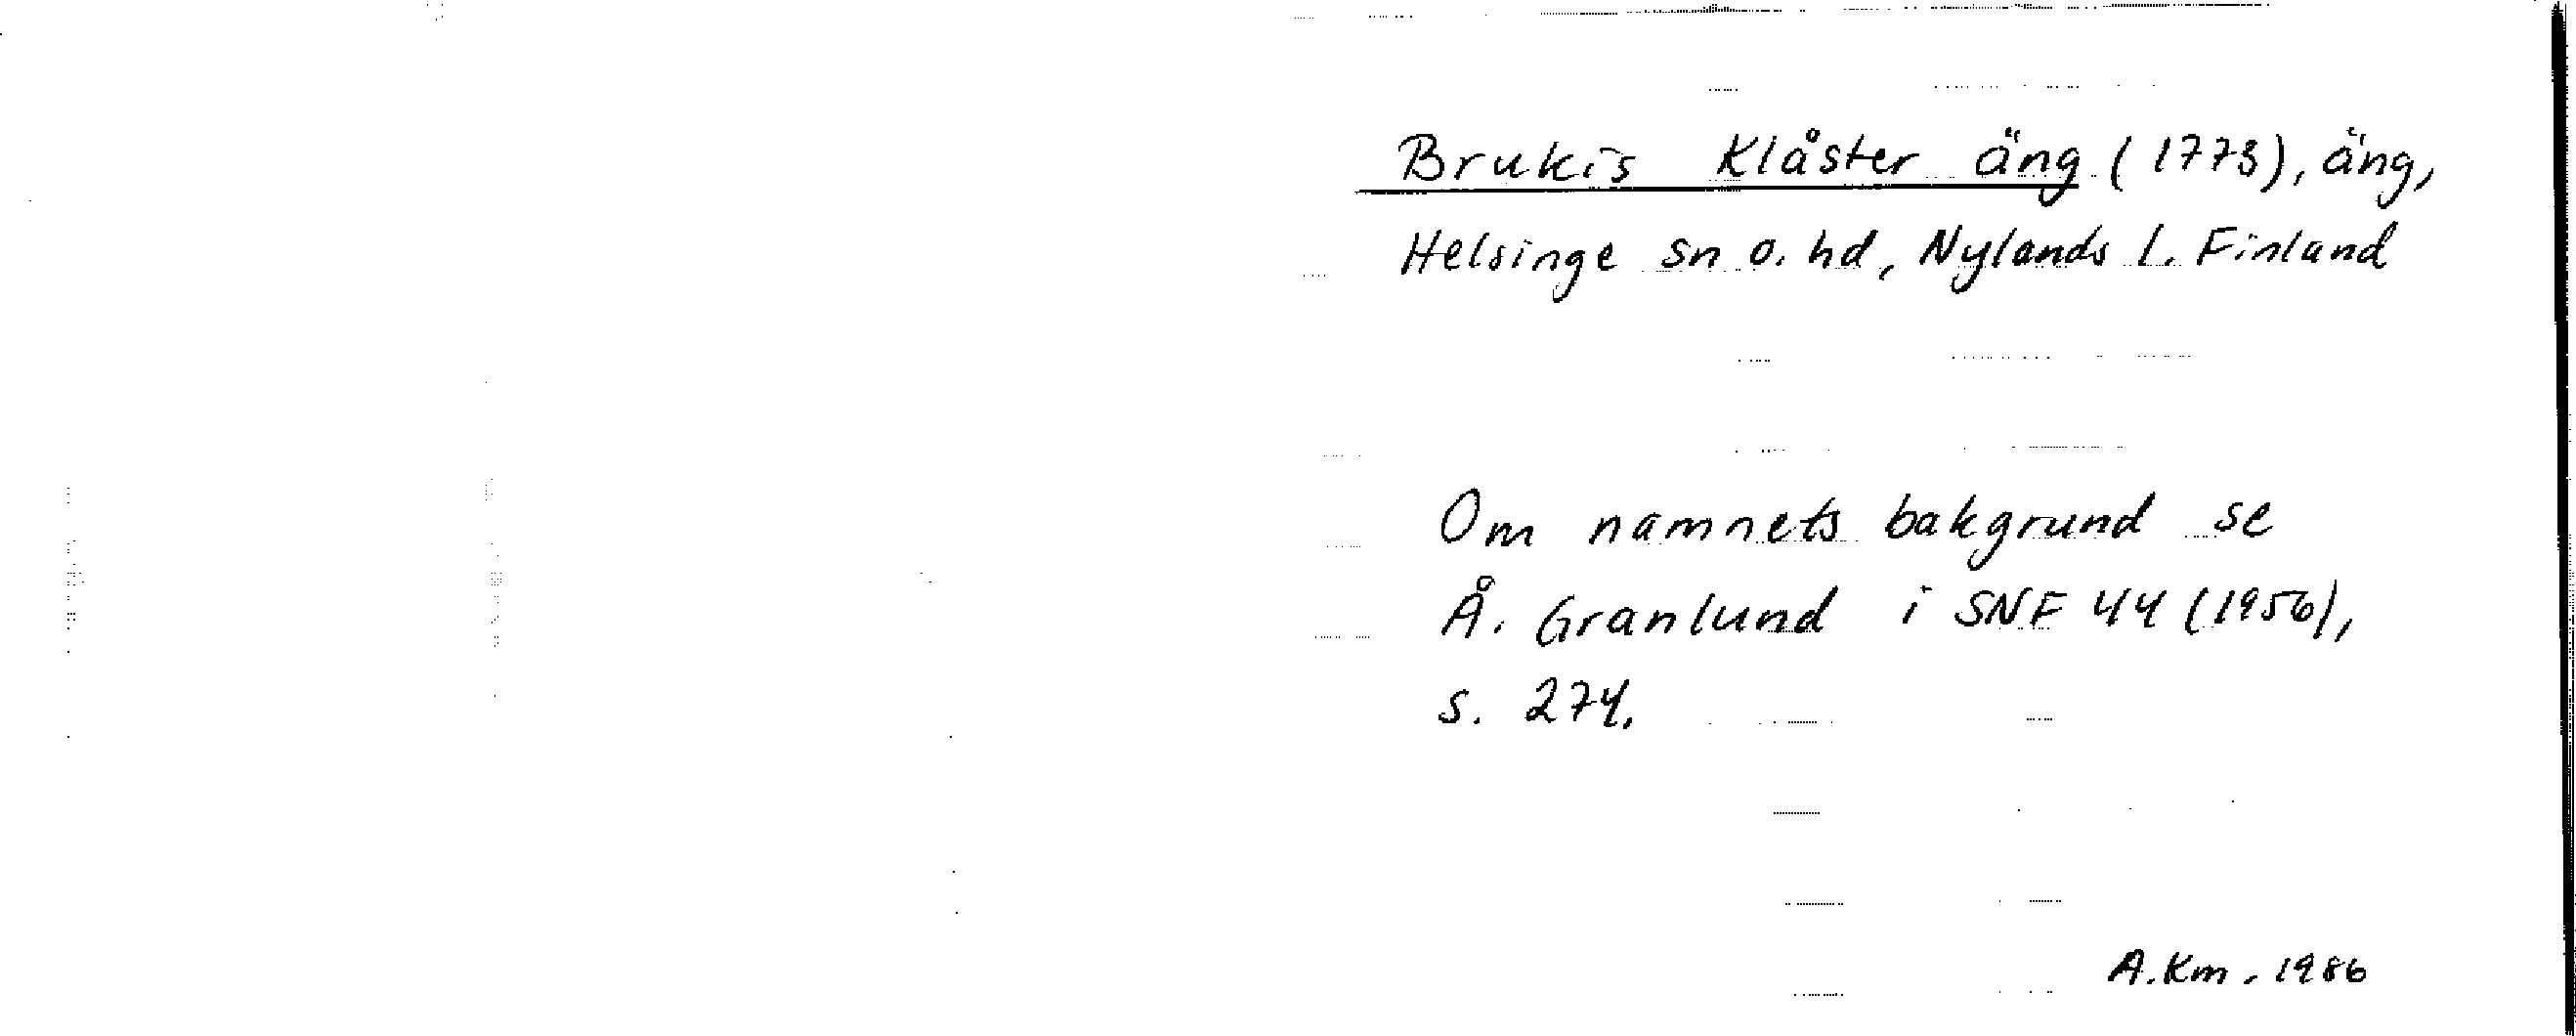 Brukis Klåster äng (1773), äng,
Helsinge sn o. hd, Nylands l. Finland
Om namnets bakgrund se
Å. Granlund i SNF 44 (1956),
s. 274.
A.Km. 1986